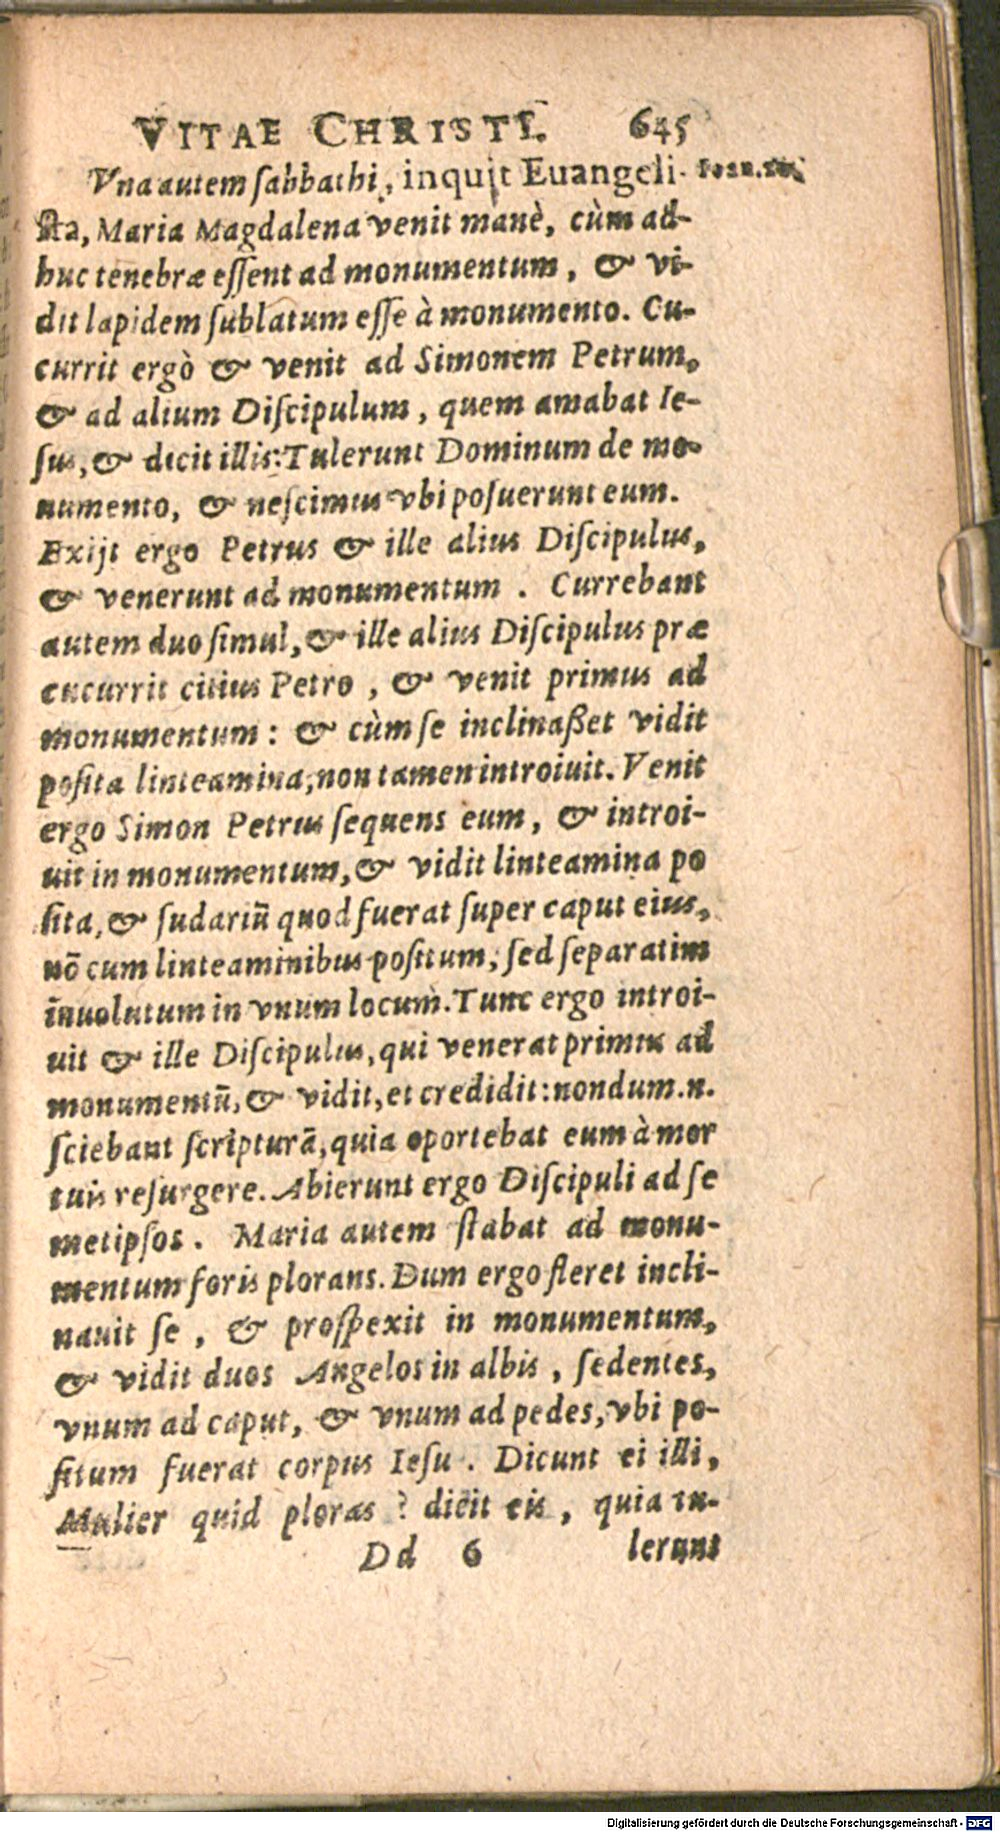 VITAE CHRISTI. 645
Vna autem ſabbathi, inquit Euangeli- Ioan. 20.
ſta, Maria Magdalena venit manè, cùm ad-
huc tenebræ eſſent ad monumentum, & vi-
dit lapidem ſublatum eſſe à monumento. Cu-
currit ergò & venit ad Simonem Petrum,
& ad alium Diſcipulum, quem amabat Ie-
ſus, & dicit illis: Tulerunt Dominum de mo-
numento, & neſcimus vbi poſuerunt eum.
Exijt ergo Petrus & ille alius Diſcipulus,
& venerunt ad monumentum. Currebant
autem duo ſimul, & ille alius Diſcipulus præ
cucurrit citius Petro, & venit primus ad
monumentum: & cùm ſe inclinaßet vidit
poſita linteamina, non tamen introiuit. Venit
ergo Simon Petrus ſequens eum, & introi-
uit in monumentum, & vidit linteamina po
ſita, & ſudariũ quod fuerat ſuper caput eius,
nō cum linteaminibus poſitum, ſed ſeparatim
inuolutum in vnum locum. Tunc ergo introi-
uit & ille Diſcipulus, qui venerat primus ad
monumentũ, & vidit, et credidit: nondum .n.
ſciebant ſcripturā, quia oportebat eum à mor
tuis reſurgere. Abierunt ergo Diſcipuli ad ſe
metipſos. Maria autem ſtabat ad monu-
mentum foris plorans. Dum ergo fleret incli-
nauit ſe, & proſpexit in monumentum,
& vidit duos Angelos in albis, ſedentes,
vnum ad caput, & vnum ad pedes, vbi po-
ſitum fuerat corpus Ieſu. Dicunt ei illi,
Mulier quid ploras? dicit eis, quia tu-
Dd 6 lerunt
Digitalisierung gefördert durch die Deutsche Forschungsgemeinschaft - DFG